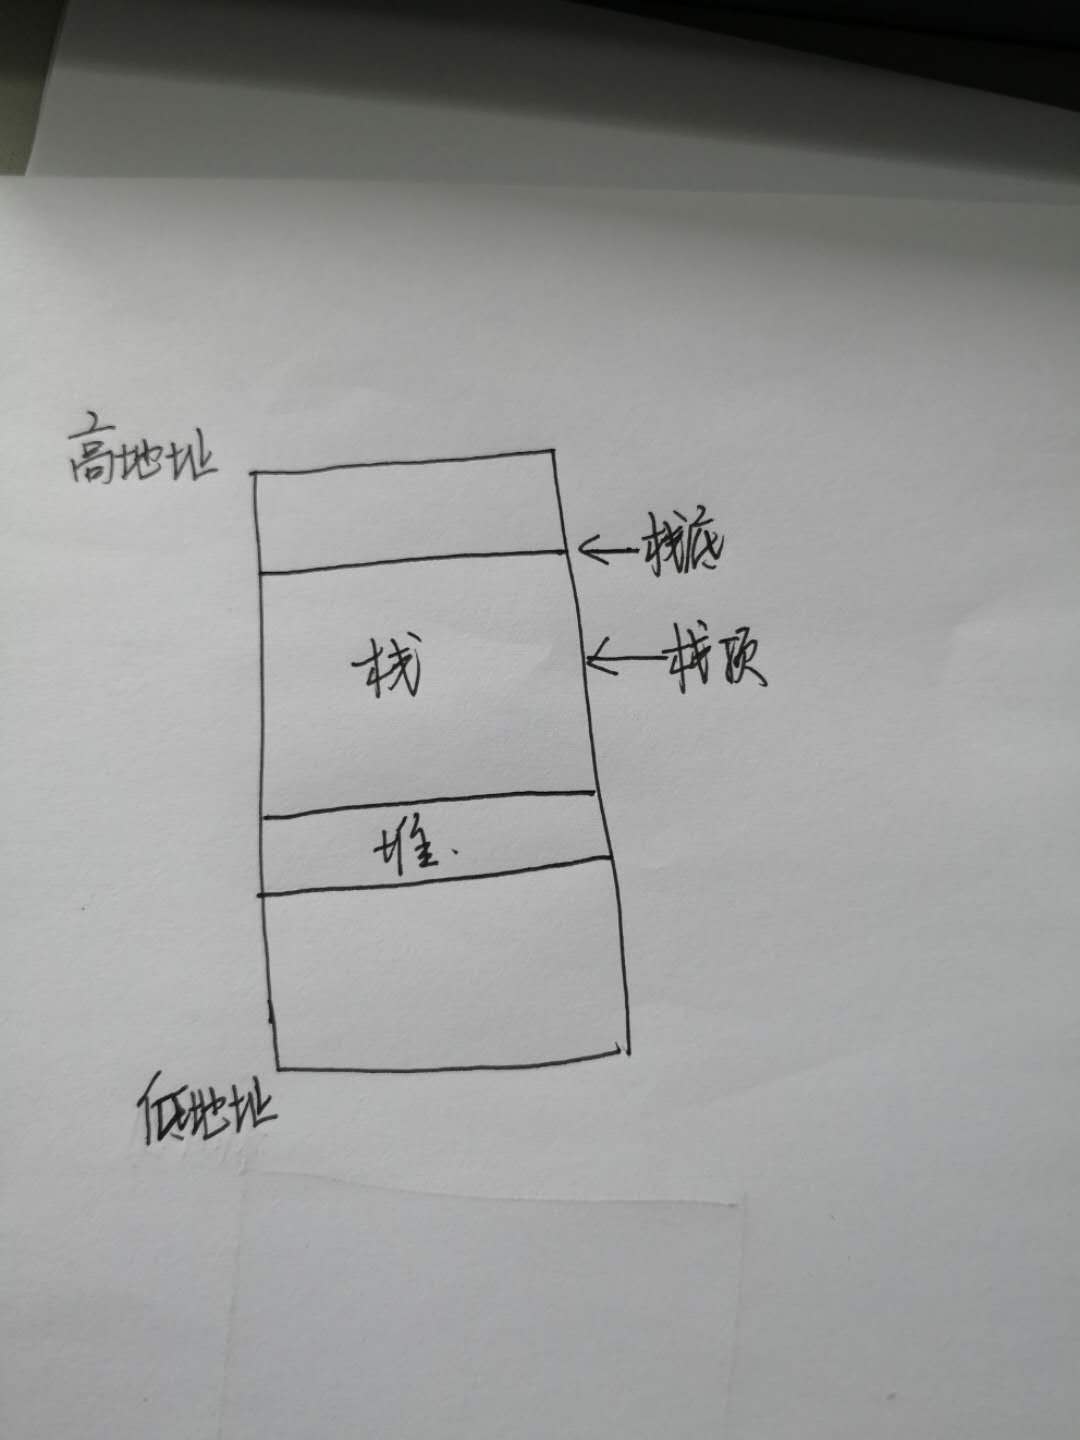 高地址
栈底
栈
栈顶
堆.
低地址